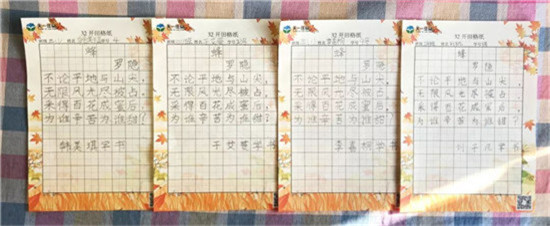 32开田格纸
蜂
罗隐
不论平地与山尖，
无限风光尽被占，
采得百花成蜜后，
为谁辛苦为谁甜？
学书
32开田格纸
蜂
罗隐
不论平地与山尖，
无限风光尽被占，
采得百花成蜜后，
为谁辛苦为谁甜？
学书
32开田格纸
蜂
罗隐
不论平地与山尖，
无限风光尽被占，
采得百花成蜜后，
为谁辛苦为谁甜？
学书
32开田格纸
蜂
罗隐
不论平地与山尖，
无限风光尽被占，
采得百花成蜜后，
为谁辛苦为谁甜？